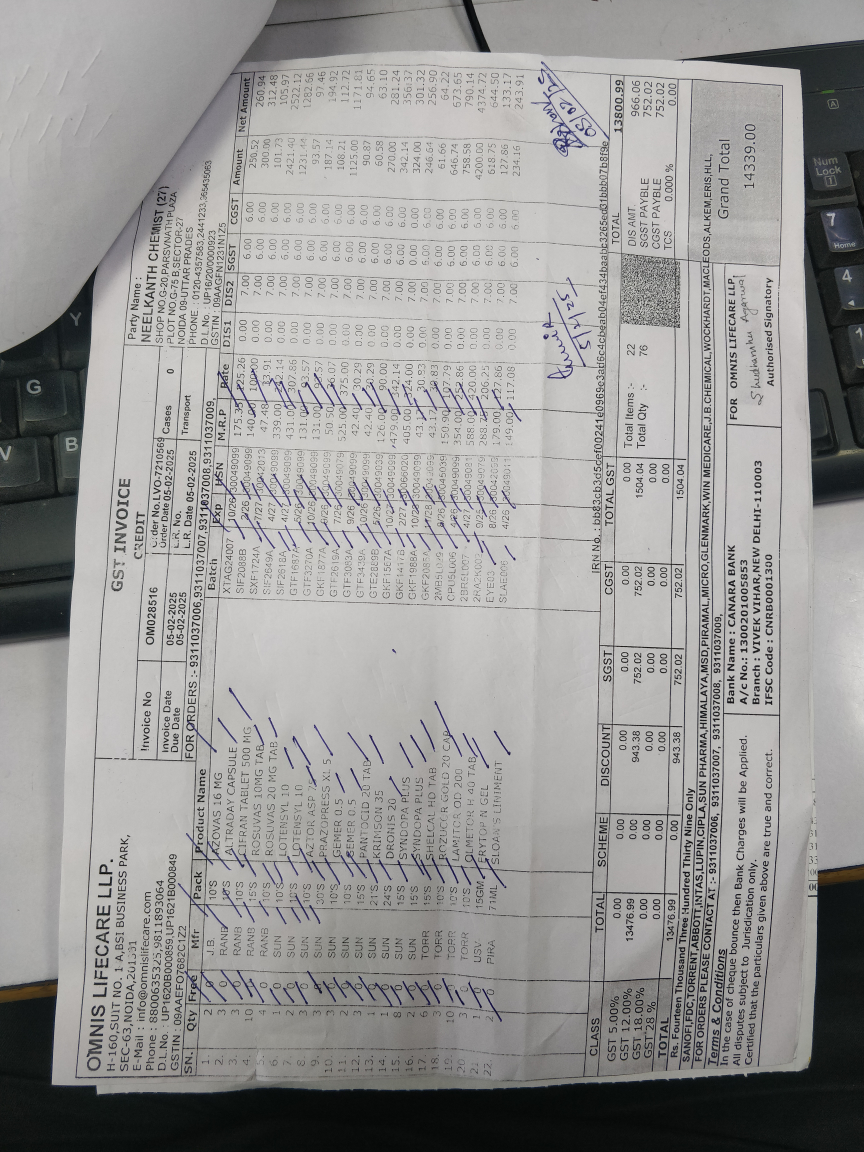 OMNIS LIFECARE LLP.
H-160,SUIT NO. 1-A,BSI BUSINESS PARK,
SEC-63,NOIDA,201301
E-Mail : info@omnislifecare.com
Phone : 8800635325,9811893064
D.L.No. : UP1620B000859,UP1621B000849
GSTIN : 09AAEFO7682G1Z2
GST INVOICE
CREDIT
Invoice No OM028516 Order No.LVO-7210569
Order Date 05-02-2025 Cases 0
Invoice Date 05-02-2025 L.R. No.
Due Date 05-02-2025 L.R. Date 05-02-2025 Transport
Party Name :
NEELKANTH CHEMIST (27)
SHOP NO G-20,PARSVNATH PLAZA
PLOT NO G-75 B,SECTOR-27
NOIDA 09-UTTAR PRADES
PHONE : 0120-4357583,2441233,
D.L.No. : UP16/20/0000923
GSTIN: 09AAGFN1231N1Z5
FOR ORDERS :- 9311037006,9311037007,9311037008,9311037009,
SN. Qty Free Mfr Pack Product Name Batch Exp HSN M.R.P Rate DIS1 DIS2 SGST CGST Amount Net Amount
1. 2 0 J.B. 10'S AZOVAS 16 MG XTAG24007 10/26 30049099 0.00 7.00 6.00 6.00 250.52 260.94
2. 3 0 RANB 10'S ALTRADAY CAPSULE SIF2088B 0.00 7.00 6.00 6.00 300.00 312.48
3. 3 0 RANB 10'S CIFRAN TABLET 500 MG SXF1724A 7/27 0.00 7.00 6.00 6.00 101.73 105.97
4. 10 RANB 15'S ROSUVAS 10MG TAB SIF2649A 339.00 0.00 7.00 6.00 6.00 2421.40 2522.12
5. 4 0 RANB 10'S ROSUVAS 20 MG TAB SIF2618A 4/27 431.00 307.86 0.00 7.00 6.00 6.00 1231.44 1282.66
6. 1 0 SUN 10'S LOTENSYL 10 131.00 93.57 0.00 7.00 6.00 6.00 93.57 97.46
7. 2 0 SUN 10'S LOTENSYL 10 131.00 93.57 0.00 7.00 6.00 6.00 187.14 194.92
8. 3 0 SUN 10'S AZTOR ASP 75 50.50 36.07 0.00 7.00 6.00 6.00 108.21 112.72
9. 3 SUN 30'S PRAZOPRESS XL 5 525.00 375.00 0.00 7.00 6.00 6.00 1125.00 1171.81
10. 3 SUN 10'S GEMER 0.5 42.40 30.29 0.00 7.00 6.00 6.00 90.87 94.65
11. 2 0 SUN 10'S GEMER 0.5 42.40 30.29 0.00 7.00 6.00 6.00 60.58 63.10
12. 3 0 SUN 15'S PANTOCID 20 TAB 126.00 90.00 0.00 7.00 6.00 6.00 270.00 281.24
13. 1 0 SUN 21'S KRIMSON 35 479.00 342.14 0.00 7.00 6.00 6.00 342.14 356.37
14. 1 0 SUN 24'S DRONIS 20 405.00 324.00 0.00 7.00 0.00 0.00 324.00 301.32
15. 8 0 SUN 15'S SYNDOPA PLUS 30.83 0.00 7.00 6.00 6.00 246.64 256.90
16. 2 0 SUN 15'S SYNDOPA PLUS 30.83 0.00 7.00 6.00 6.00 61.66 64.22
17. 6 0 TORR 15'S SHELCAL HD TAB 150.90 107.79 0.00 7.00 6.00 6.00 646.74 673.65
18. 3 TORR 10'S ROZUCOR GOLD 20 CAP 354.00 252.86 0.00 7.00 6.00 6.00 758.58 790.14
19. 10 TORR 10'S LAMITOR OD 200 588.00 420.00 0.00 7.00 6.00 6.00 4200.00 4374.72
20. 3 0 TORR 10'S OLMETOR H 40 TAB 206.25 0.00 7.00 6.00 6.00 618.75 644.50
21. 1 0 USV 15GM ERYTOP N GEL EYE603 8/26 179.00 127.86 0.00 7.00 6.00 6.00 127.86 133.17
22. 2 0 PIRA 71ML SLOAN'S LINIMENT 4/26 149.00 117.08 0.00 7.00 6.00 6.00 234.16 243.91
5/2/25
05/02/25
CLASS TOTAL SCHEME DISCOUNT SGST CGST TOTAL GST
GST 5.00% 0.00 0.00 0.00 0.00 0.00 0.00
GST 12.00% 13476.99 0.00 943.38 752.02 752.02 1504.04
GST 18.00% 0.00 0.00 0.00 0.00 0.00 0.00
GST 28 % 0.00 0.00 0.00 0.00 0.00 0.00
TOTAL 13476.99 0.00 943.38 752.02 752.02 1504.04
Total Items :- 22
Total Qty :- 76
TOTAL 13800.99
DIS AMT. 966.06
SGST PAYBLE 752.02
CGST PAYBLE 752.02
TCS 0.000 % 0.00
Rs. Fourteen Thousand Three Hundred Thirty Nine Only
SANOFI,FDC,TORRENT,ABBOTT,INTAS,LUPIN,CIPLA,SUN PHARMA,HIMALAYA,MSD,PIRAMAL,MICRO,GLENMARK,WIN MEDICARE,J.B.CHEMICAL,WOCKHARDT,MACLEODS,ALKEM,ERIS,HLL,
FOR ORDERS PLEASE CONTACT AT :- 9311037006, 9311037007, 9311037008, 9311037009,
Grand Total
14339.00
Terms & Conditions
In the case of cheque bounce then Bank Charges will be Applied.
All disputes subject to Jurisdication only.
Certified that the particulars given above are true and correct.
Bank Name : CANARA BANK
A/c No.: 13002010058​53
Branch : VIVEK VIHAR,NEW DELHI-110003
IFSC Code : CNRB0001300
FOR OMNIS LIFECARE LLP.
Shubhanshu Agarwal
Authorised Signatory
Num
Lock
7
Home
4
G
Y
V
B